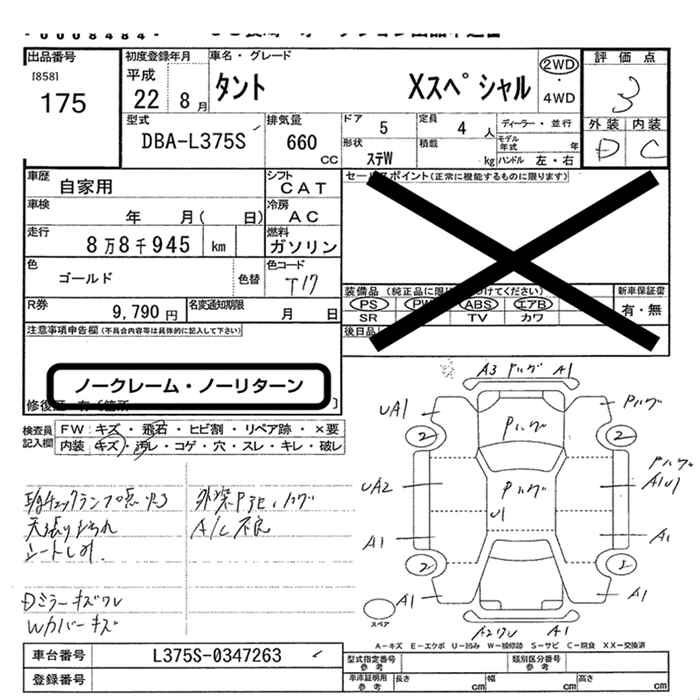 出品番号
[858]
175
初度登録年月
平成
22 8月
車名・グレード
タント Xスペシャル
2WD
・
4WD
評価点
3
外装 内装
D C
型式
DBA-L375S
排気量
660
cc
ドア
5
定員
4 人
形状
ステW
積載
kg
ディーラー・並行
モデル年式 年
ハンドル 左・右
車歴
自家用
シフト
CAT
車検
年 月( 日)
冷房
AC
走行
8万8千945 km
燃料
ガソリン
色
ゴールド
色替
色コード
T17
R券
9,790円
名変通知期限
月 日
セールスポイント(正常に機能するものに限ります)
装備品
PS PW ABS エアB
SR TV カワ
新車保証書
有・無
後日品
注意事項申告欄(不具合内容等は具体的に記入して下さい)
ノークレーム・ノーリターン
検査員
記入欄
FW:キズ・飛石・ヒビ割・リペア跡・×要
内装:キズ・汚レ・コゲ・穴・スレ・キレ・破レ
E/gチェックランプ点灯
天張りよごれ
シートしみ
Dミラーキズワレ
Wカバーキズ
A/C不良
A3 ハゲ A1
UA1
Pハゲ
2
2
Pハゲ
Pハゲ
UA2
U1
A1
A1
2
1
A1
A1
A2ワレ A1
スペア
A-キズ E-エクボ U-凹み W-補修跡 S-サビ C-腐食 XX-交換済
車台番号
L375S-0347263
登録番号
型式指定番号
参考
類別区分番号
参考
車庫証明用
参考
長さ cm
幅 cm
高さ cm